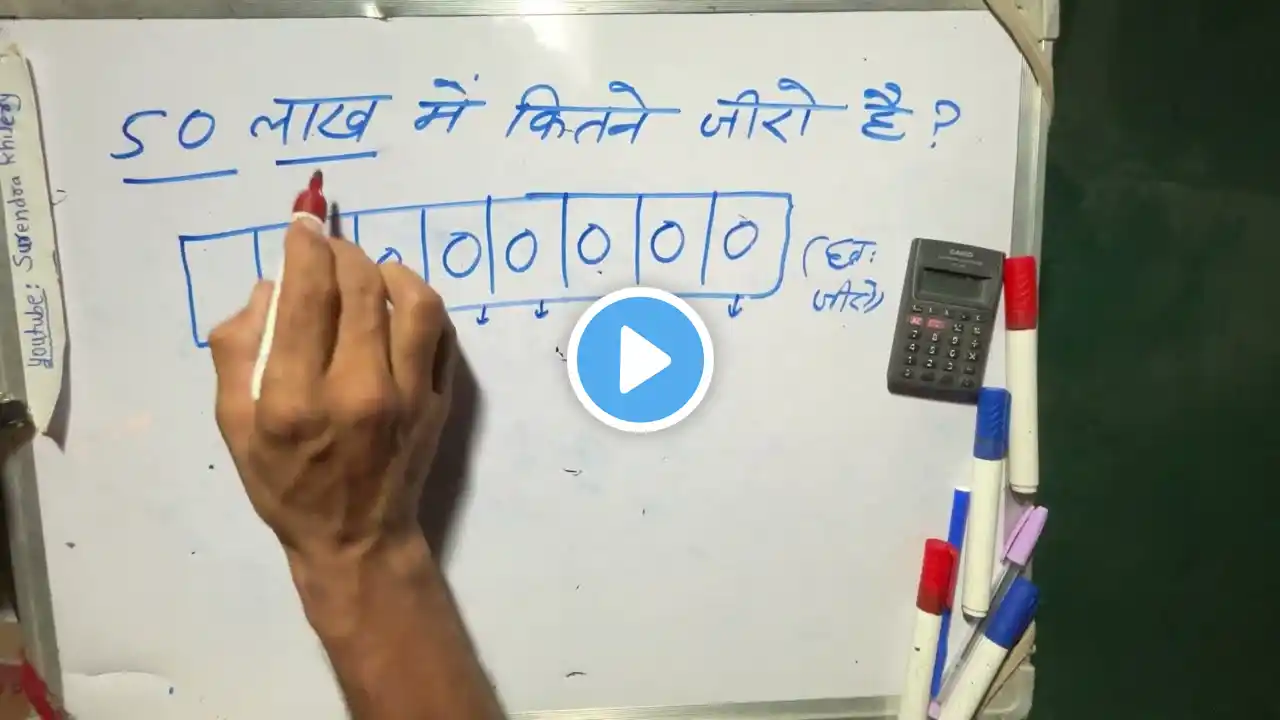 Youtube: Surendra Khilery
50 लाख में कितने जीरो है?
0 0 0 0 0 0
(छः
जीरो)
CASIO